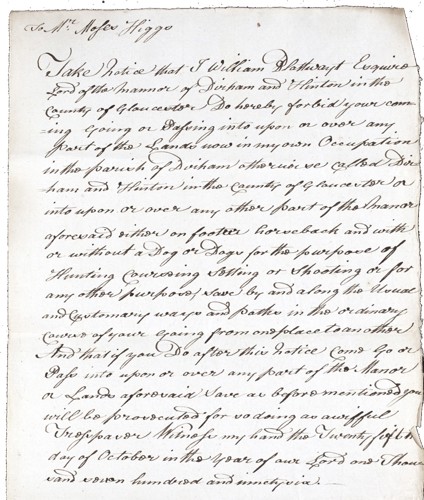 To Mr. Moses Higgs
Take Notice that I William Blathwayt Esquire
Lord of the mannor of Dirham and Hinton in the
County of Gloucester Do hereby forbid your com=
=ing Going or Passing into upon or over any
part of the Lands now in my own Occupation
in the parish of Dirham otherwise called Dur
ham and Hinton in the County of Gloucester or
into upon or over any other part of the Manor
aforesaid either on foot or horseback and with
or without a Dog or Dogs for the purpose of
Hunting Courseing Setting or Shooting or for
any other purpose, save by and along the Usual
and Customary ways and paths in the ordinary
Course of your Going from one place to another
And that if you Do after this Notice Come Go or
Pass into upon or over any part of the Manor
or Lands aforesaid Save as before mentioned you
will be prosecuted for so doing as a wilful
Trespasser Witness my hand the Twenty fifth
day of October in the Year of our Lord one Thou
sand seven hundred and ninety six